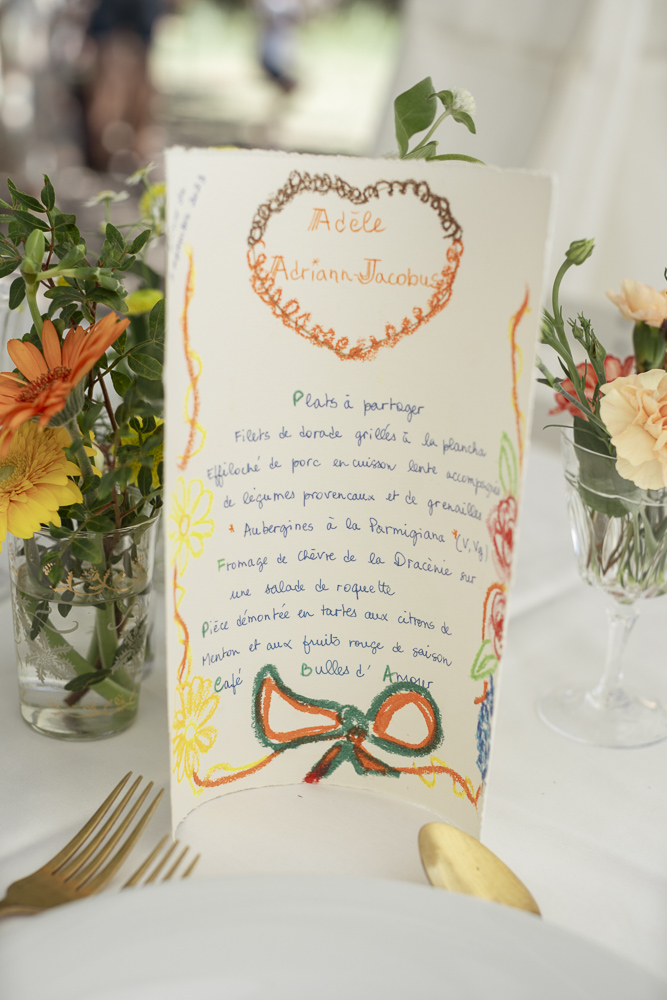 Adèle
Adriann-Jacobus
Plats à partager
Filets de dorade grillés à la plancha
Effiloché de porc en cuisson lente accompagné
de légumes provencaux et de grenailles
* Aubergines à la Parmigiana * (V, Vg)
Fromage de chèvre de la Dracènie sur
une salade de roquette
Pièce démontée en tartes aux citrons de
Menton et aux fruits rouge de saison
Café Bulles d' Amour